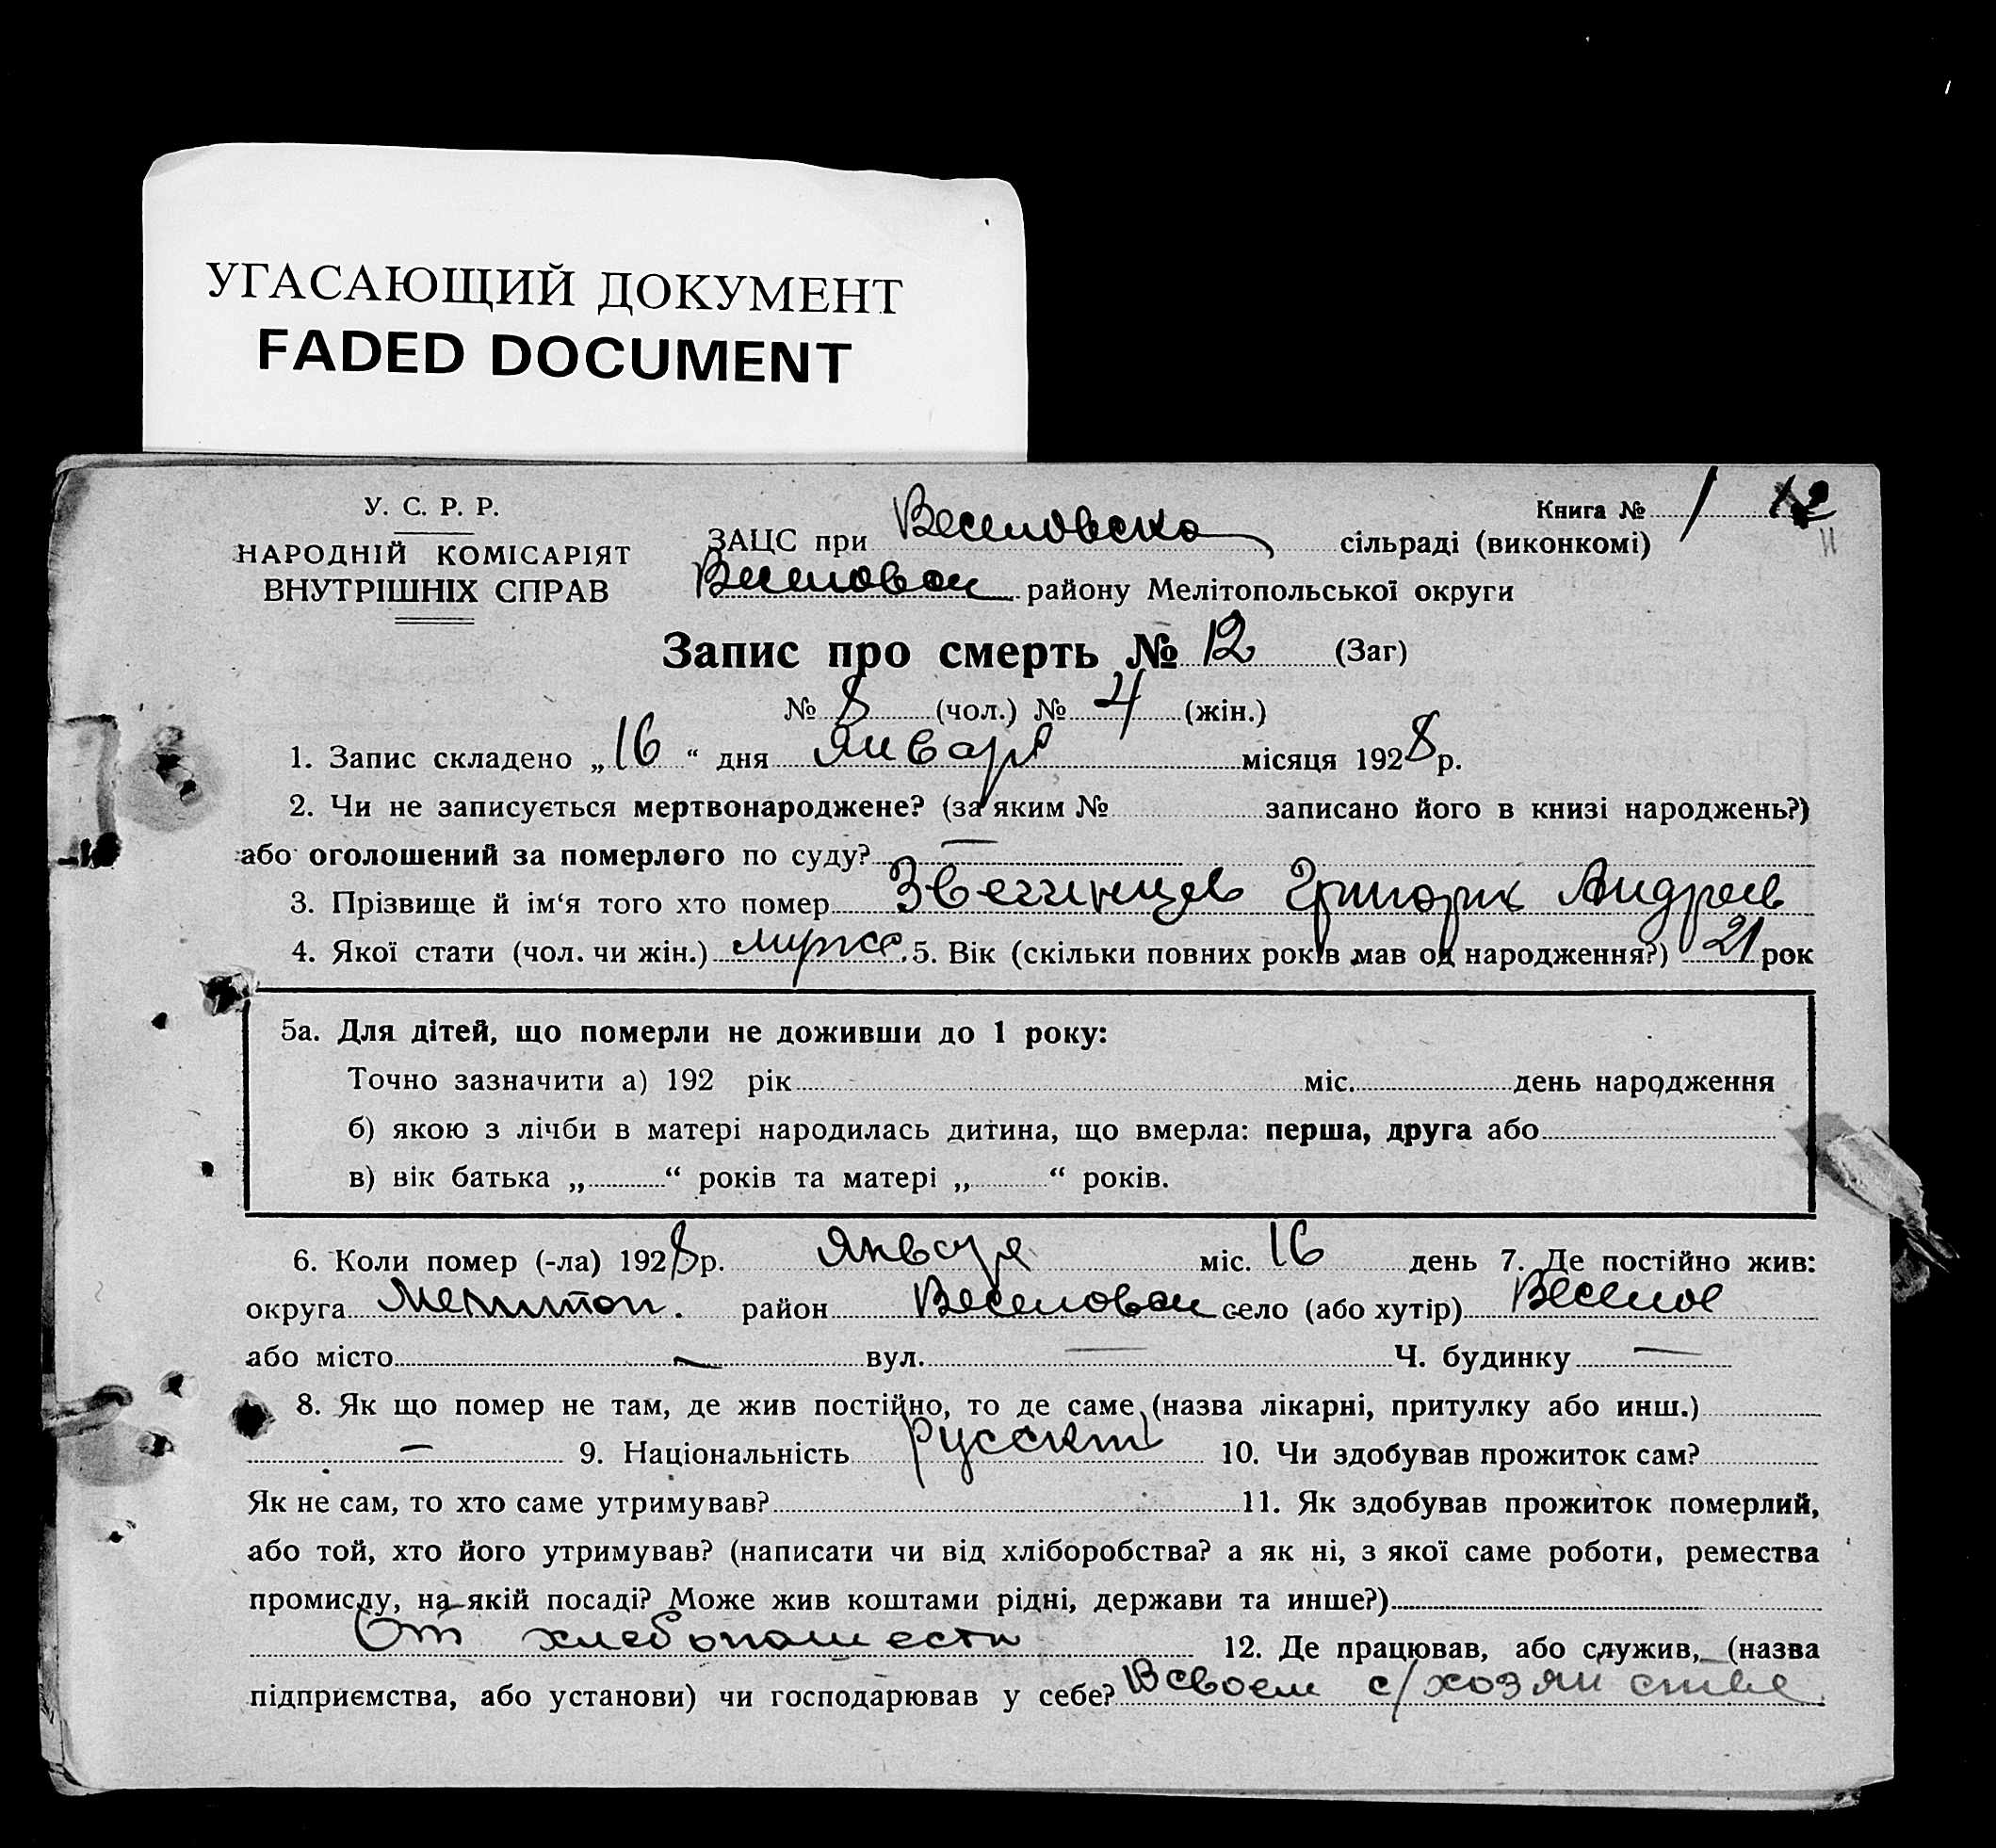 УГАСАЮЩИЙ ДОКУМЕНТ
FADED DOCUMENT
У. С. Р. Р.
НАРОДНІЙ КОМІСАРІЯТ
ВНУТРІШНІХ СПРАВ
Книга № 1 12
ЗАЦС при Веселовско сільраді (виконкомі)
Веселовск району Мелітопольської округи
Запис про смерть № 12 (Заг)
№ 8 (чол.) № 4 (жін.)
1. Запис складено „16“ дня Января місяця 1928 р.
2. Чи не записується мертвонароджене? (за яким № записано його в книзі народжень?)
або оголошений за померлого по суду? —
3. Прізвище й ім‘я того хто помер Звегинцев Григорий Андреев
4. Якої стати (чол. чи жін.) мужс. 5. Вік (скільки повних років мав од народження?) 21 рок
5а. Для дітей, що померли не доживши до 1 року:
Точно зазначити а) 192 рік міс. день народження
б) якою з лічби в матері народилась дитина, що вмерла: перша, друга або
в) вік батька „ “ років та матері „ “ років.
6. Коли помер (-ла) 1928 р. Января міс. 16 день 7. Де постійно жив:
округа Мелитоп. район Веселовск село (або хутір) Веселое
або місто — вул. — Ч. будинку —
8. Як що помер не там, де жив постійно, то де саме (назва лікарні, притулку або инш.)
— 9. Національність Русский 10. Чи здобував прожиток сам?
Як не сам, то хто саме утримував? 11. Як здобував прожиток померлий,
або той, хто його утримував? (написати чи від хліборобства? а як ні, з якої саме роботи, ремества
промислу, на якій посаді? Може жив коштами рідні, держави та инше?)
От хлебопашести 12. Де працював, або служив, (назва
підприємства, або установи) чи господарював у себе? В своем с/хозяистве